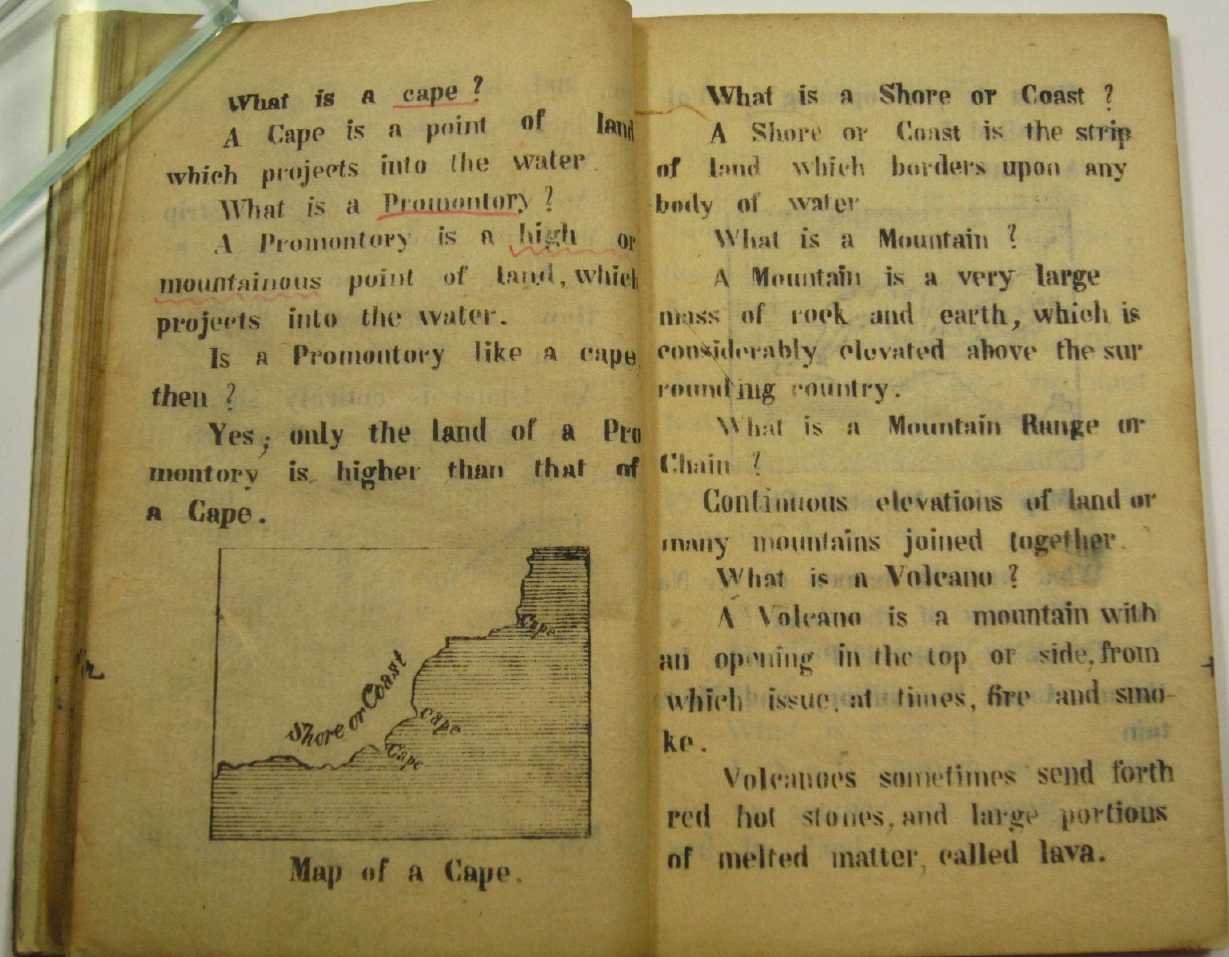 What is a cape ?
A Cape is a point of land
which projects into the water.
What is a Promontory ?
A Promontory is a high or
mountainous point of land, which
projects into the water.
Is a Promontory like a cape
then ?
Yes; only the land of a Pro
montory is higher than that of
a Cape.
Cape
Shore or Coast
cape
Cape
Map of a Cape.
What is a Shore or Coast ?
A Shore or Coast is the strip
of land which borders upon any
body of water
What is a Mountain ?
A Mountain is a very large
mass of rock and earth, which is
considerably elevated above the sur
rounding country.
What is a Mountain Range or
Chain ?
Continuous elevations of land or
many mountains joined together.
What is a Volcano ?
A Volcano is a mountain with
an opening in the top or side, from
which issue, at times, fire and smo-
ke.
Volcanoes sometimes send forth
red hot stones, and large portions
of melted matter, called lava.